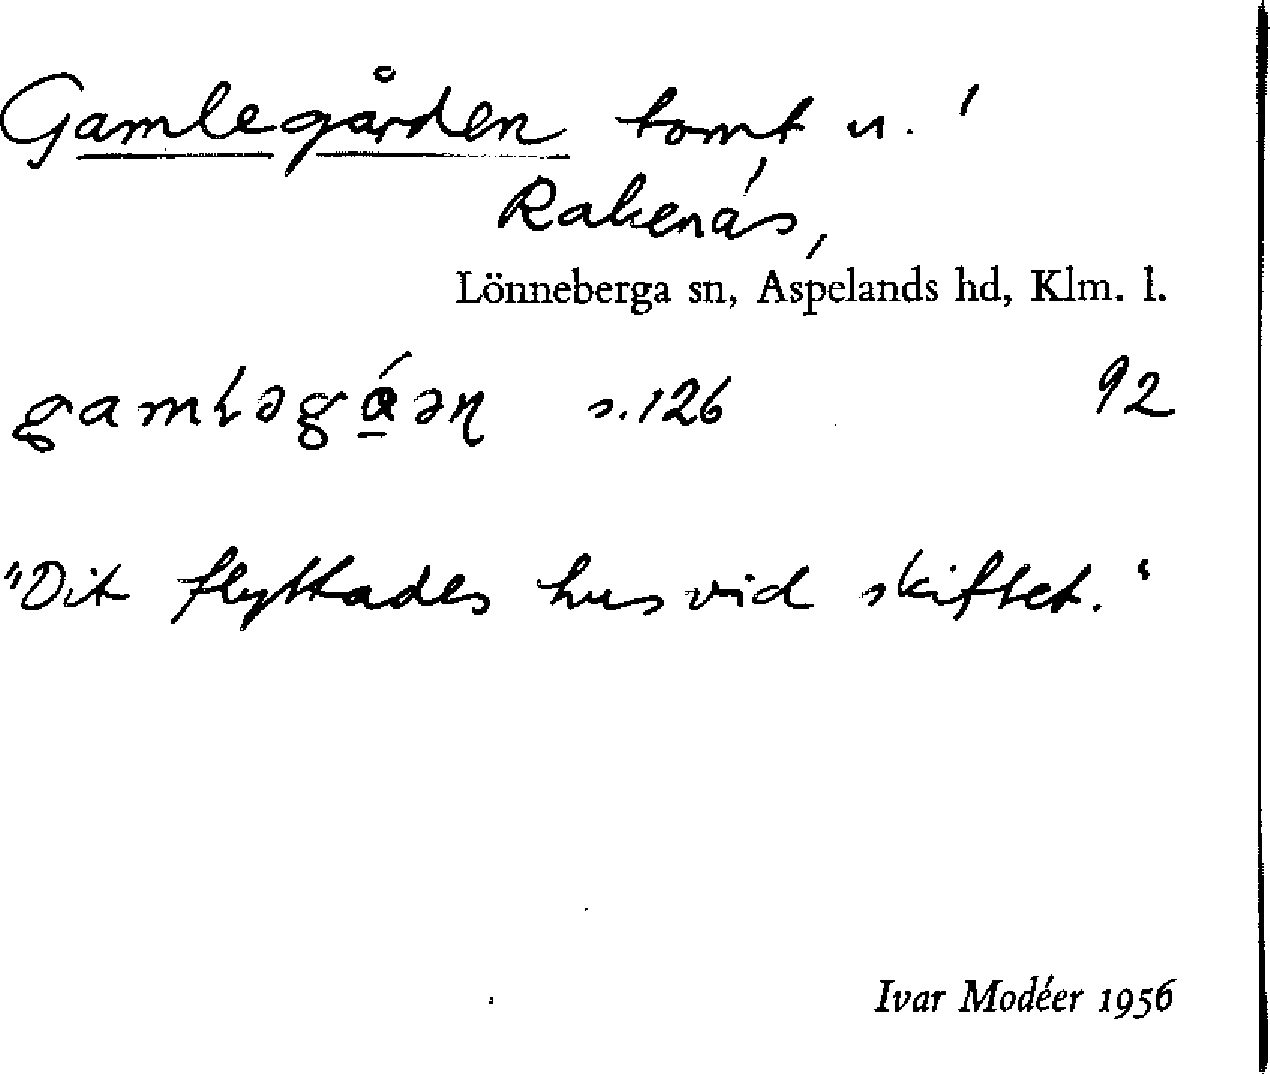 Gamlegården tomt u. '
Rakenäs,
Lönneberga sn, Aspelands hd, Klm. l.
s. 126 92
"Dit flyttades hus vid skiftet."
Ivar Modéer 1956